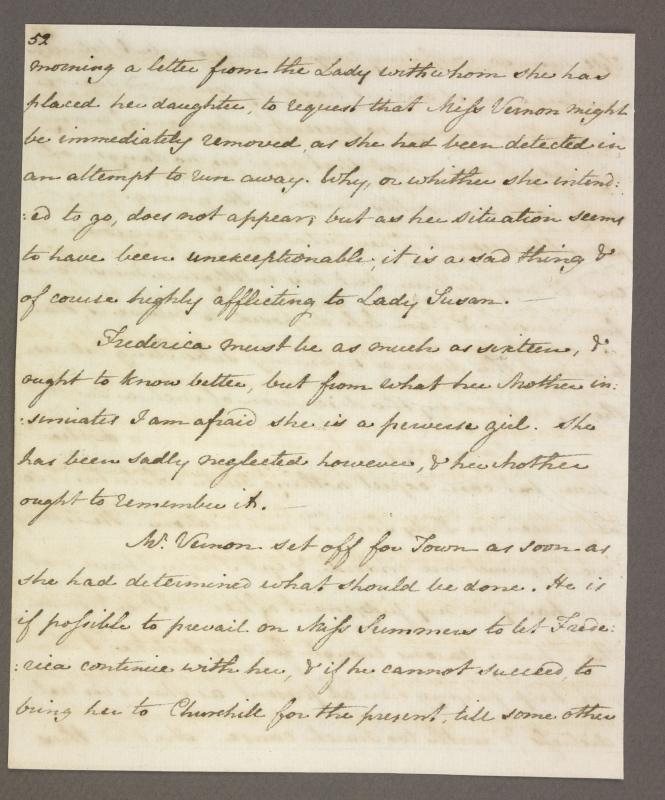 52
morning a letter from the Lady with whom she has
placed her daughter, to request that Miss Vernon might
be immediately removed, as she had been detected in
an attempt to run away. Why, or whither she intend:
:ed to go, does not appear; but as her situation seems
to have been unexceptionable, it is a sad thing &
of course highly afflicting to Lady Susan. —
Frederica must be as much as sixteen, &
ought to know better, but from what her Mother in:
:sinuates I am afraid she is a perverse girl. She
has been sadly neglected however, & her Mother
ought to remember it. —
Mr. Vernon set off for Town as soon as
she had determined what should be done. He is
if possible to prevail on Miss Summers to let Frede:
:rica continue with her, & if he cannot succeed, to
bring her to Churchill for the present, till some other